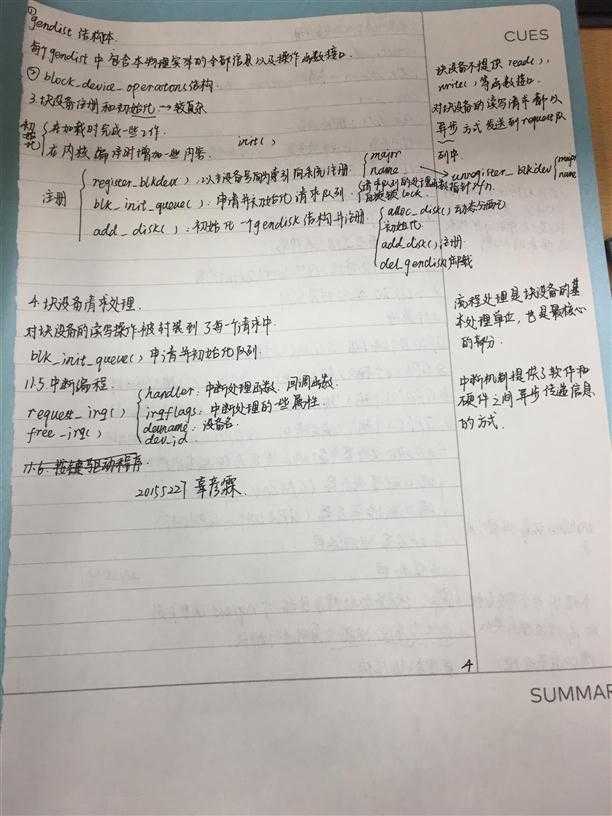 ①
gendist 结构体.
每个gendist 中包含本物理实体的全部信息以及操作函数接口.
② block_device_operations结构.
3.块设备注册和初始化→较复杂
初始化 { 在加载时完成一些工作.
在内核编译时增加一些内容. init( )
注册 { register_blkdev( ), 以主设备号为索引向系统注册. { major
name
blk_init_queue( ): 申请并初始化请求队列. { 请求队列的处理函数指针
自旋锁 lock.
add_disk( ): 初始化一个gendisk结构并注册. { alloc_disk( )动态分配
初始化
add_disk( )注册
del_gendisk 卸载
4.块设备请求处理.
对块设备的读写操作被封装到了每一个请求中.
blk_init_queue( ) 申请并初始化队列.
11.5 中断编程
request_irq( )
free_irq( )
{ handler: 中断处理函数, 回调函数.
irqflags: 中断处理的一些属性.
devname: 设备名.
dev_id.
11.6. 按键驱动程序.
20155227 辜彦霖.
4
CUES
块设备不提供 read( ),
write( ) 等函数接口.
对块设备的读写请求都以
异步方式发送到request队
列中
unregister_blkdev { major
name
流程处理是块设备的基
本处理单位, 也是最核心
的部分.
中断机制提供了软件和
硬件之间异步传递信息
的方式.
SUMMAR